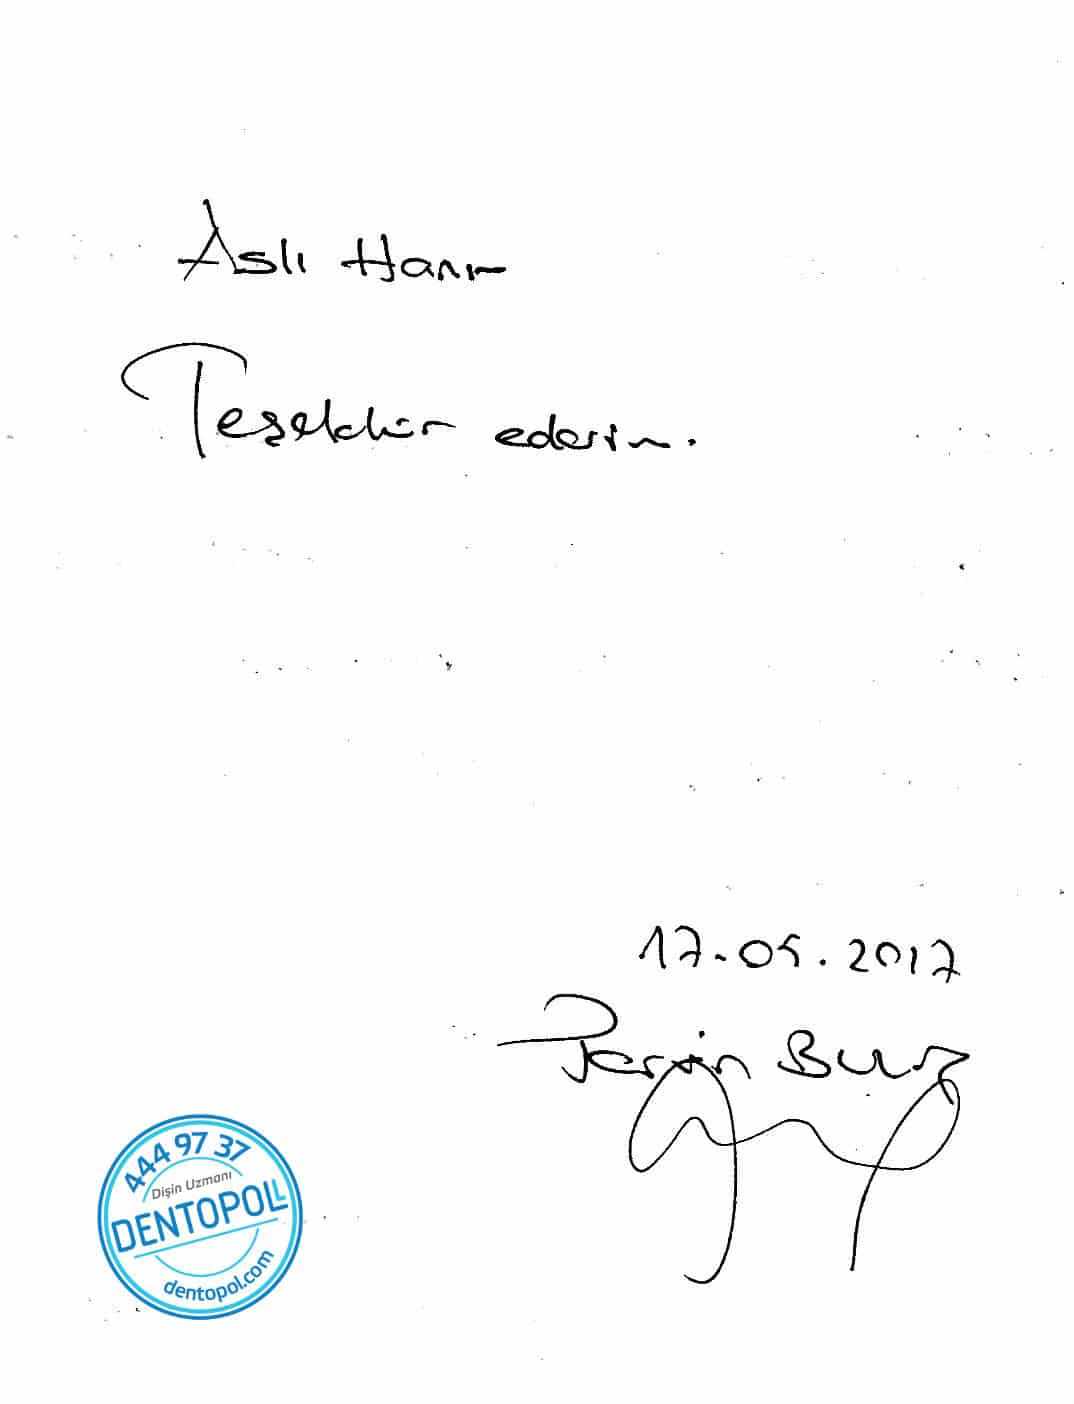 Aslı Hanım
Teşekkür ederim.
17.05.2017
Pervin Buz
444 97 37
Dişin Uzmanı
DENTOPOL
dentopol.com